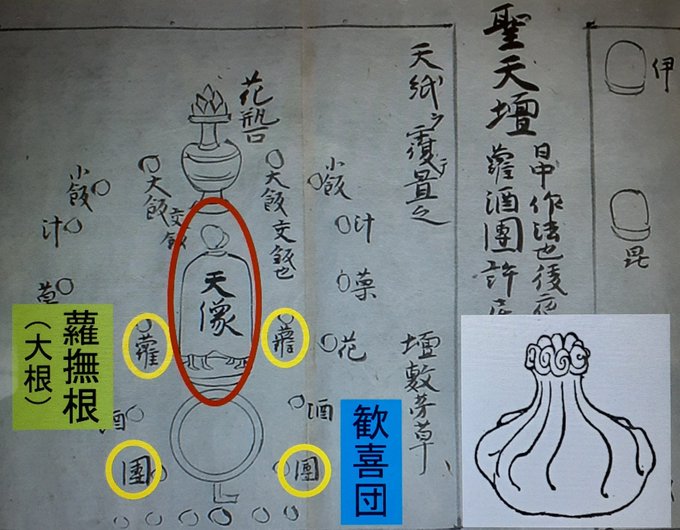 伊
毘
聖天壇
日中作法也後夜
蘿酒團許
天紙ヲ覆畳之
壇敷茅草
花瓶
小飯
汁
菓
花
大飯
交飯也
蘿
酒
團
天像
大飯
交飯
蘿
團
小飯
汁
菓
酒
歓喜団
蘿撫根
(大根)